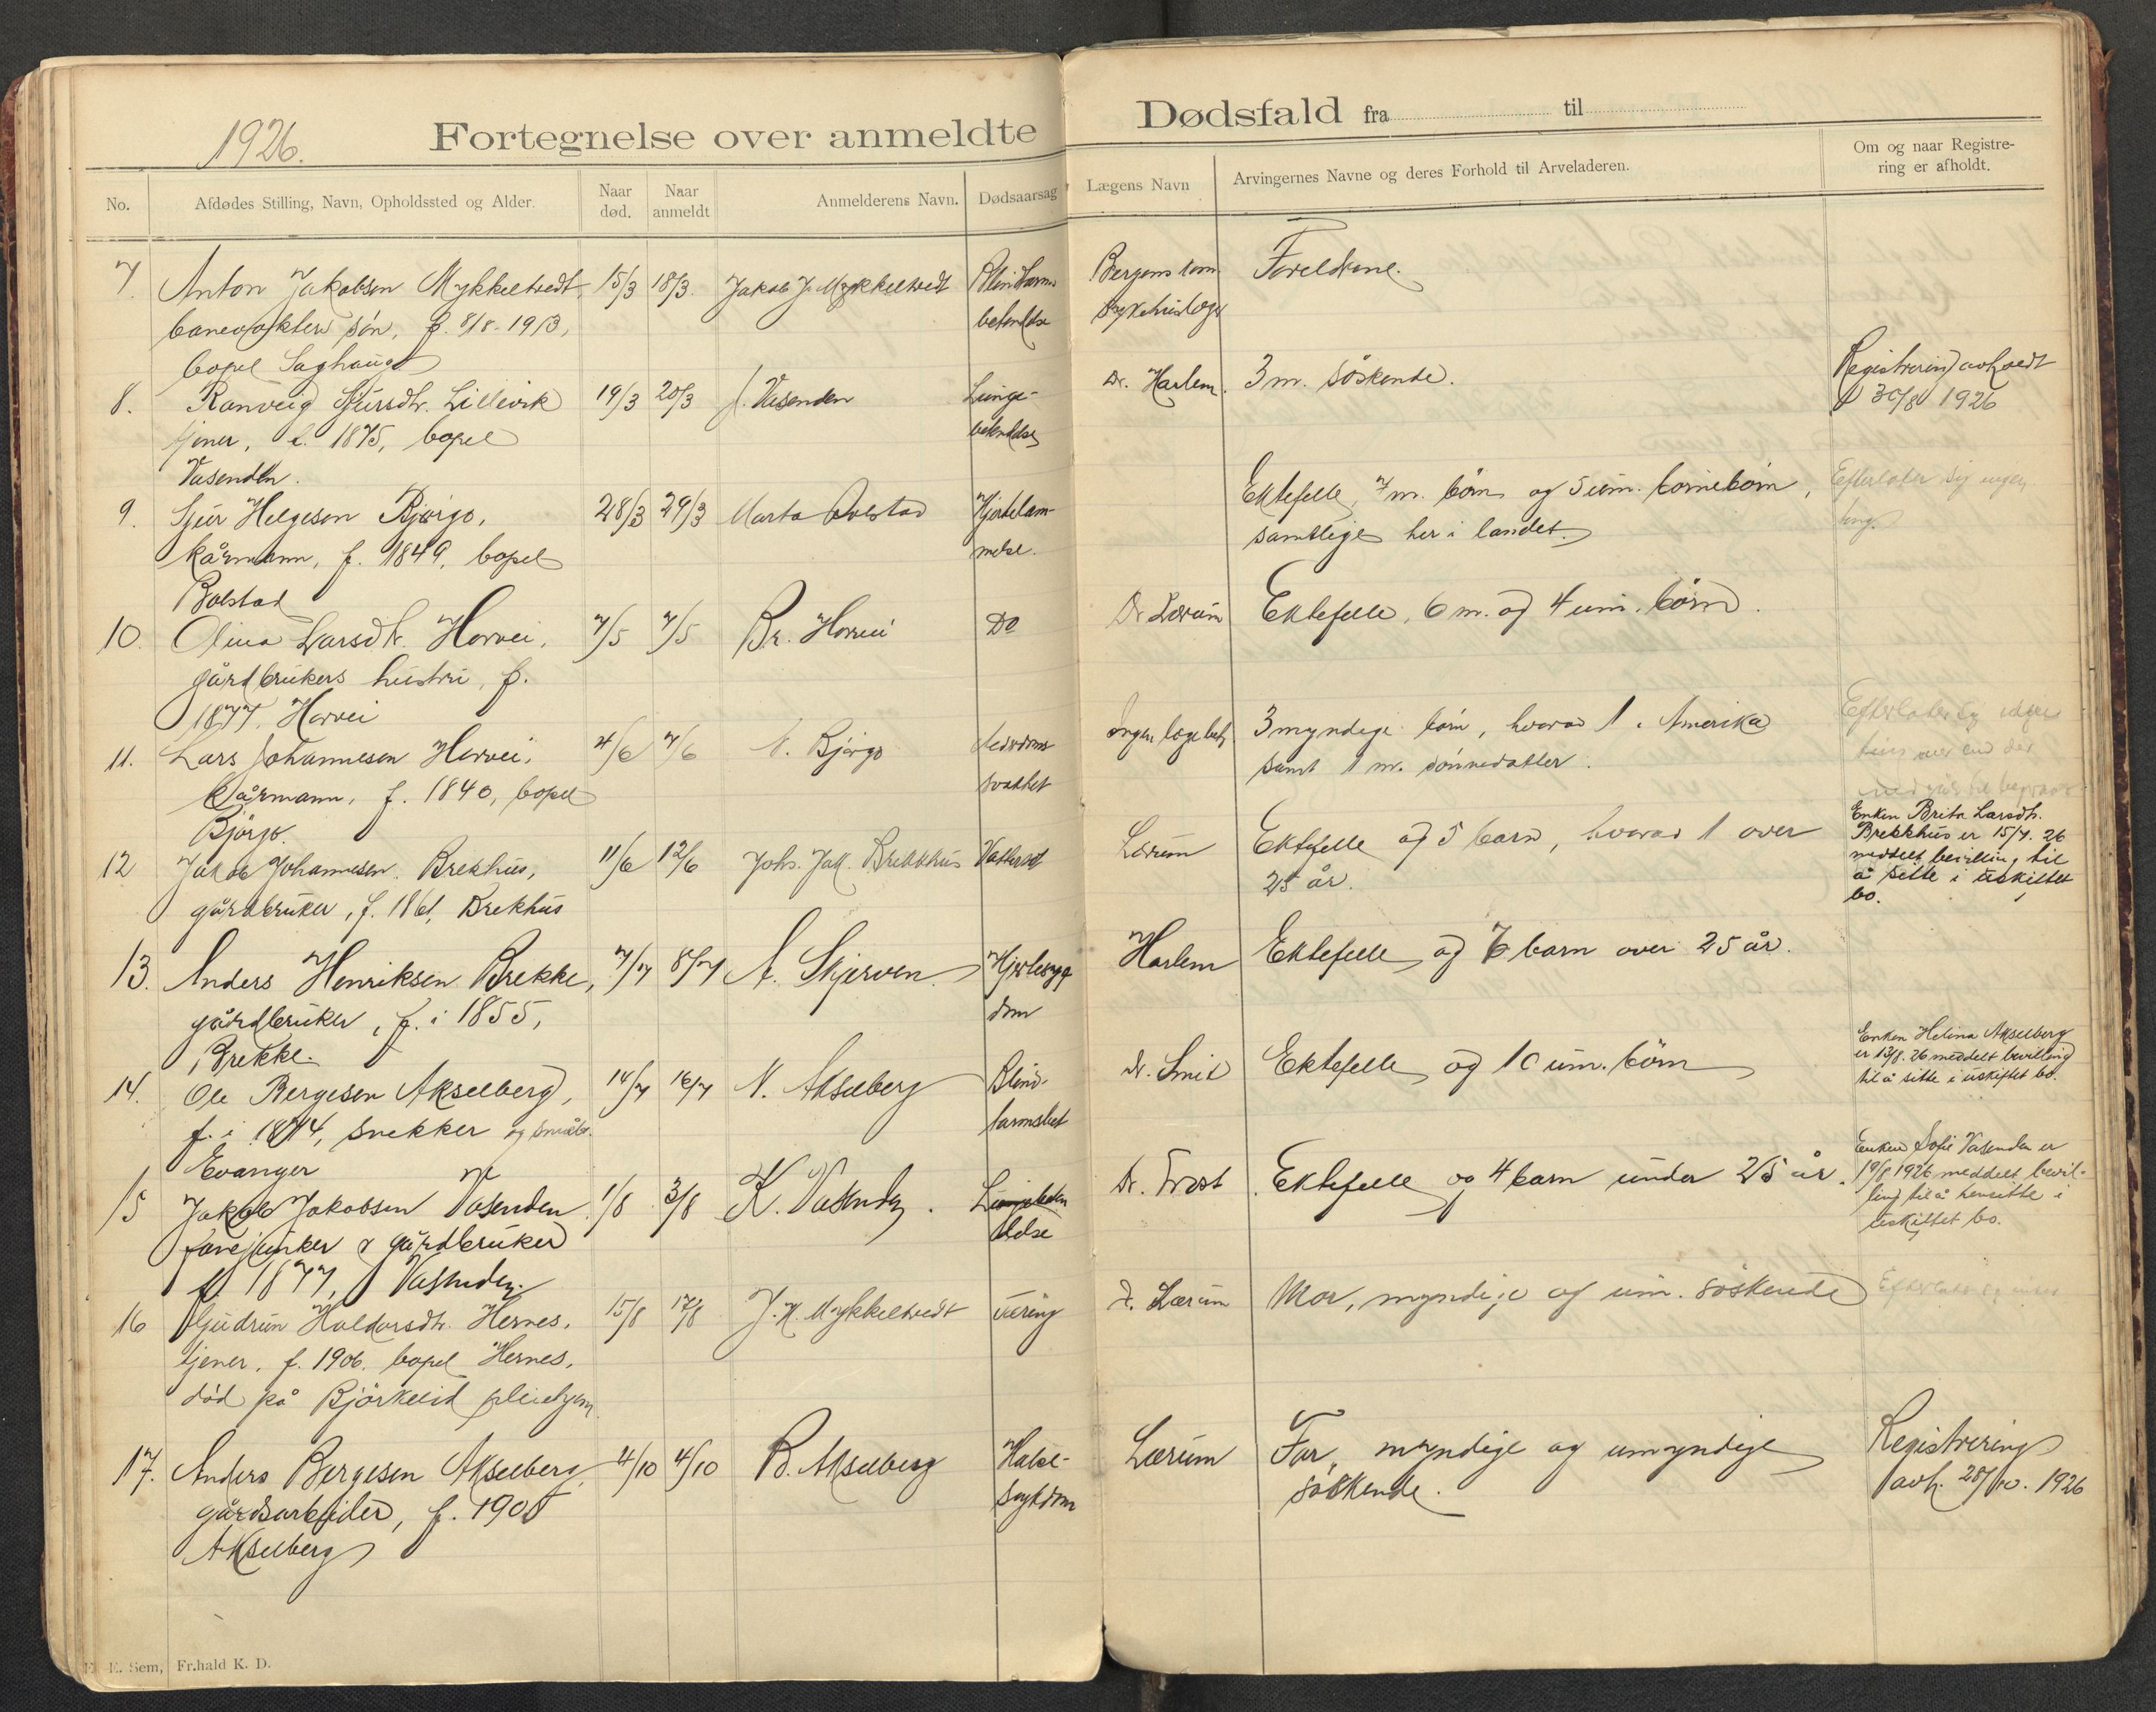 1926.
Fortegnelse over anmeldte
Dødsfald fra til
No.
Afdødes Stilling, Navn, Opholdssted og Alder.
Naar død.
Naar anmeldt
Anmelderens Navn.
Dødsaarsag
Lægens Navn
Arvingernes Navne og deres Forhold til Arveladeren.
Om og naar Registre-
ring er afholdt.
7. Anton Jakobsen Mykkeltvedt, 15/3 18/3. Jakob J. Mykkeltvedt Blindtarms Bergens kom. Foreldrene.
banevokters søn, f. 8/8-1913, betendelse sykehuslæge
bopel Saghaug
8. Ranveig Sjursdtr. Lillevik 19/3 20/3 J. Vasenden Lunge- Dr. Harlem. 3 m. søskende. Registrering avholdt
tjener, f. 1875, bopel betendelse 30/8 1926
Vasenden.
9. Sjur Helgesen Bjørgo, 28/3 29/3 Marta Bolstad Hjertelam- Ektefelle, 7 m. børn og 5 um. børnebørn, Efterlater sig ingen
kårmann, f. 1849, bopel melse. samtlige her i landet. ting.
Bolstad
10. Olina Larsdtr. Horvei, 7/5 7/5 Br. Horvei Do Dr Lærum Ektefelle, 6 m. og 4 um. børn.
gårdbrukers hustru, f.
1877. Horvei
11. Lars Johannesen Horvei, 4/6 7/6 N. Bjørgo Alderdoms Ingen lægebeh. 3 myndige børn, hvorav 1 i Amerika Efterlater sig
kårmann, f. 1840, bopel svakhet samt 1 m. sønnedatter.
Bjørgo.
12 Jakob Johannesen Brekhus, 11/6 12/6 Johs. Jak. Brekkhus Vattersot Lærum Ektefelle og 5 barn, hvorav 1 over
gårdbruker, f. 1861, Brekhus 25 år.
Enken Brita Larsdtr.
Brekkhus er 15/7. 26
meddelt bevilling til
å sitte i uskiftet
bo.
13. Anders Henriksen Brekke, 7/7 8/7 A. Skjerven Hjertesyg Harlem Ektefelle og 6 barn over 25 år.
gårdbruker, f. i 1855, dom
Brekke.
14. Ole Bergesen Akselberg, 14/7 16/7 N. Akselberg Blind- Dr. Smit Ektefelle og 10 um. børn
f. i 1874, snekker og småbr. tarmsbet
Evanger
Enken Helina Akselberg
er 13/8. 26 meddelt bevilling
til å sitte i uskiftet bo.
15 Jakob Jakobsen Vasenden 1/8 3/8 K. Vasenden. Lungebeten Dr. Trost Ektefelle og 4 barn under 25 år.
fanejunker & gårdbruker delse
f. 1877, Vasenden.
Enken Sofie Vasenden er
19/8 1926 meddelt bevil-
ling til å hensitte i
uskiftet bo.
16 Gudrun Haldorsdtr. Hernes, 15/8 17/8 J. K. Mykkeltvedt Tæring D. Lærum Mor, myndige og um. søskende
tjener, f. 1906. bopel Hernes,
død på Bjørkelid pleiehjem
17. Anders Bergesen Akselberg 4/10 4/10 B. Akselberg Halse- Lærum Far, myndige og umyndige Registrering
gårdsarbeider, f. 1905 sykdom søskende. avh. 28/10. 1926
Akselberg
E. Sem, Fr.hald K. D.